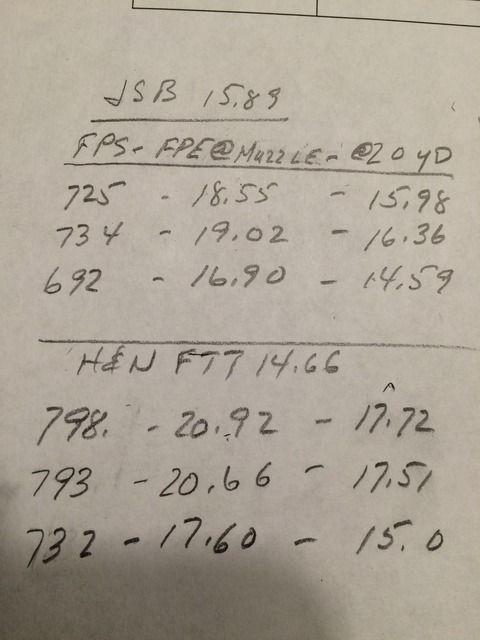 JSB 15.89
FPS - FPE @ Muzzle - @20 yD
725 - 18.55 - 15.98
734 - 19.02 - 16.36
692 - 16.90 - 14.59
H&N FTT 14.66
798. - 20.92 - 17.72
793 - 20.66 - 17.51
732 - 17.60 - 15.0